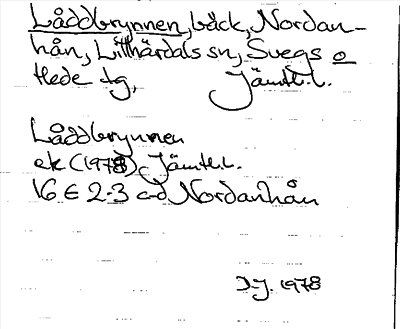 Låddbrynnen, bäck, Nordan-
hån, Lillhärdals sn, Svegs o
Hede tg, Jämtl.l.
Låddbrynnen
ek (1978) Jämtl.l.
16 E 2-3 c-d Nordanhån
D.J. 1978